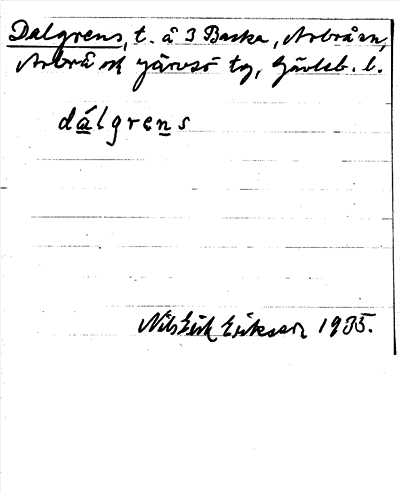 Dalgrens, t. å 3 Backa, Arbrå sn,
Arbrå ok Järvsö tg, Gävleb. l.
dálgrens
Nils Erik Eriksson 1935.